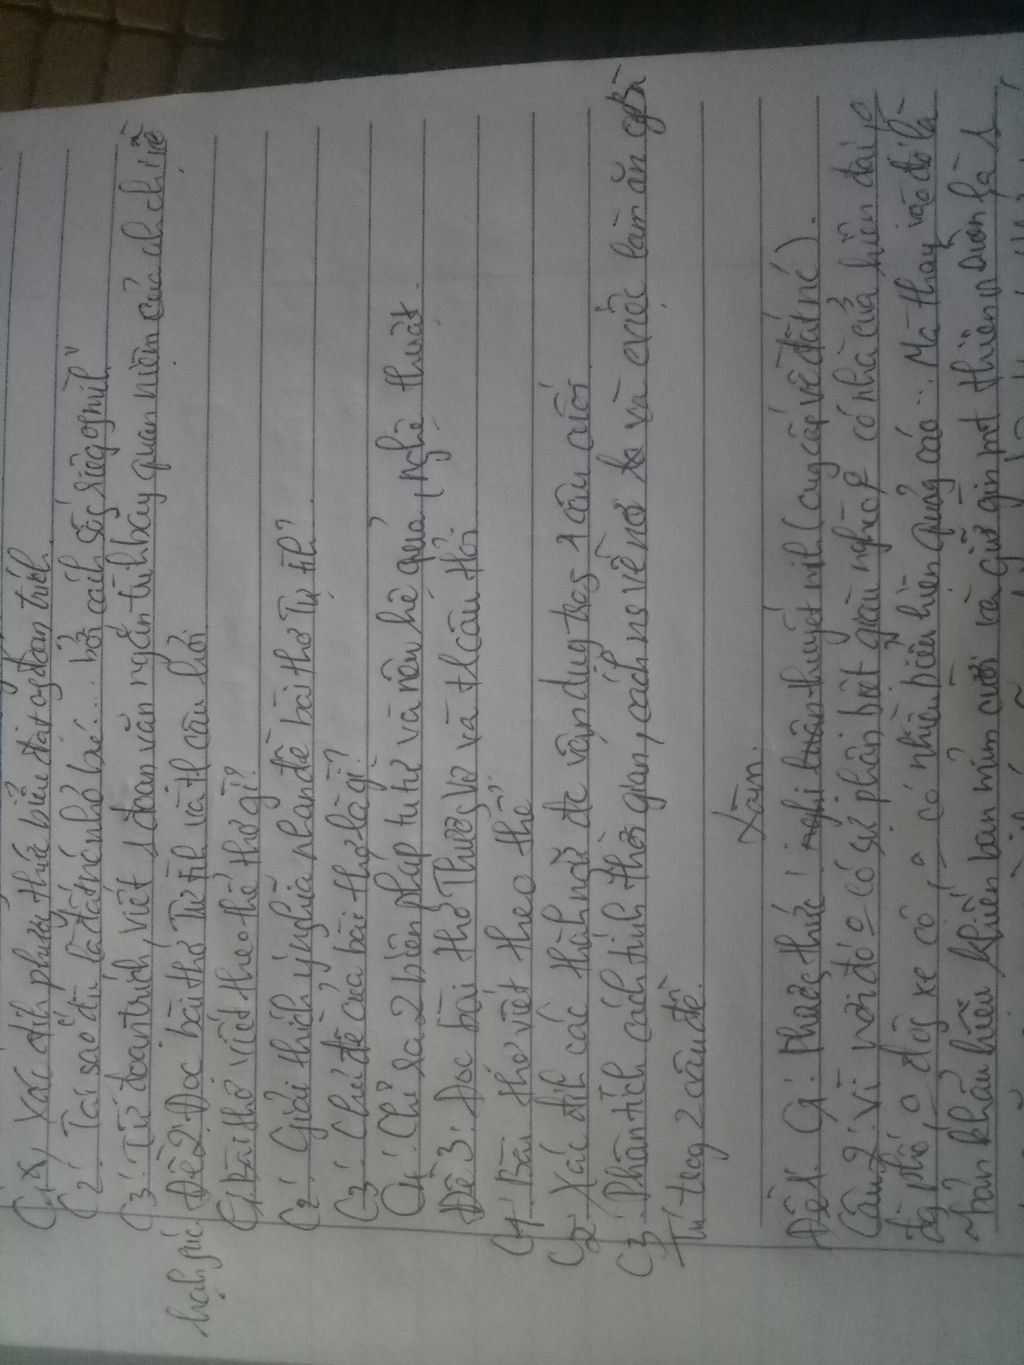 C1: Xác địh phươg thức biểu đạt og đoạn trích.
C2: Tại sao đều là đất nc nhỏ bé.... hỏi cách sốg riêg og mìh"
C3: Từ đoạn trích, viết 1 đoạn văn ngắn trìh bày quan niệm của ah chị về
hạh fúc
Đề 2: Đọc bài thơ Tự tìh và tl câu hỏi
C1. Bài thơ viết theo thể thơ gì?
C2: Giải thích ý nghĩa nhan đề bài thơ Tự tìh?
C3: Chủ đề của bài thơ là gì?
C4: Chỉ ra 2 biện pháp tu từ và nêu hệ quả (nghệ thuật.
Đề 3: Đọc bài thơ Thươg Vợ và tl câu hỏi
C1: Bài thơ viết theo thể
C2: Xác địh các thàh ngữ đc vận dụg trog 4 câu cuối
C3: Phân tích cách tíh thời gian, cách ns về nơi ta và cviệc làm ăn của bà
Tú trog 2 câu đề.
Làm.
Đề 1: C1: Phươg thức: nghị luận thuyết mih (cug cấp về đất nc).
Câu 2: Vì nơi đó o có sự phân biệt giàu nghèo, o có nhà cửa hiện đại,
đg phố, o đôg xe cộ, o có nhiều biển hiệu quảg cáo... Mà thay vào đó là
bản khẩu hiệu khiến bạn mỉm cười và giữ gìn mt thiên nhiên là 1